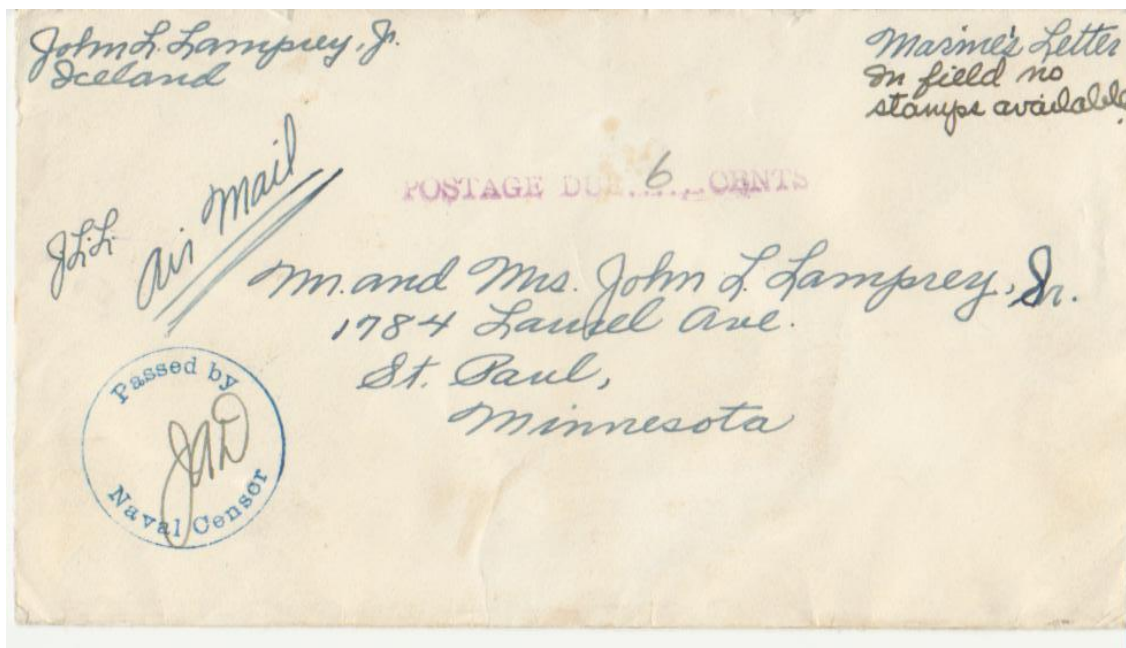 John L. Lamprey, Jr.
Iceland
Marine's Letter
In field no
stamps available.
Air Mail
J.L.L.
POSTAGE DUE 6 CENTS
Mr. and Mrs. John L. Lamprey, Sr.
1784 Laurel Ave.
St. Paul,
Minnesota
Passed by
JAD
Naval Censor